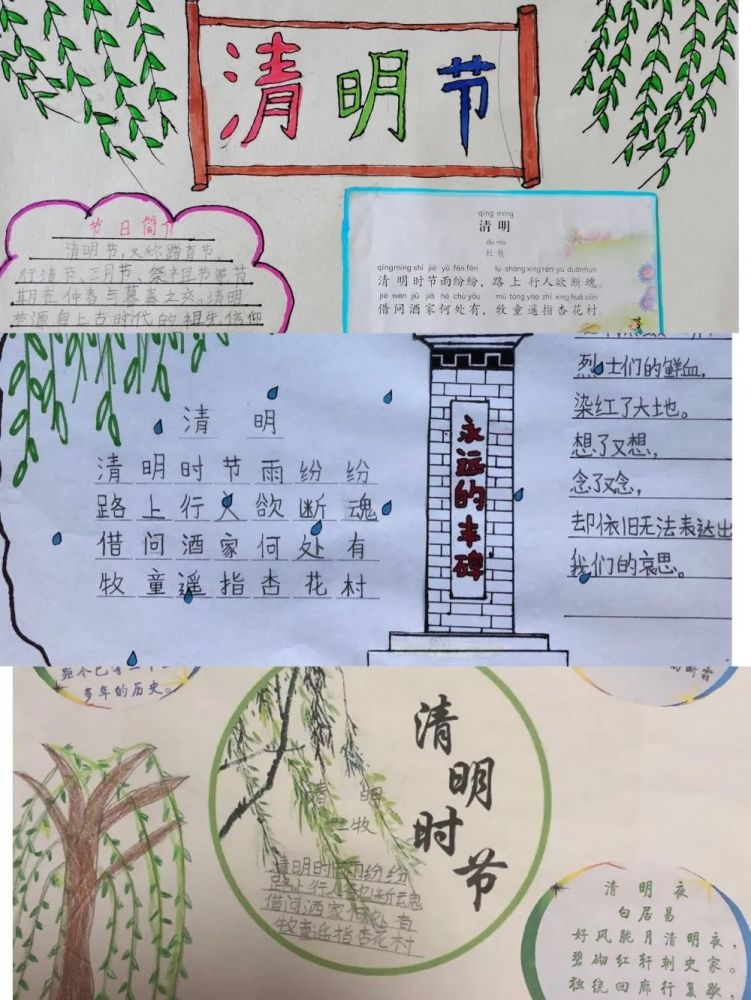 清明节
节日简介
清明节,又称踏青节、
行清节、三月节、祭祖节等,节
期在仲春与暮春之交。清明
节源自上古时代的祖先信仰
qīng míng
清明
dù mù
杜牧
qīng míng shí jié yǔ fēn fēn lù shàng xíng rén yù duàn hún
清明时节雨纷纷,路上行人欲断魂
jiè wèn jiǔ jiā hé chù yǒu mù tóng yáo zhǐ xìng huā cūn
借问酒家何处有,牧童遥指杏花村
清 明
清明时节雨纷纷
路上行人欲断魂
借问酒家何处有
牧童遥指杏花村
永远的丰碑
烈士们的鲜血,
染红了大地。
想了又想,
念了又念,
却依旧无法表达出
我们的哀思。
距今已有二千
多年的历史。
清明时节
清 明
牧
清明时节雨纷纷
路上行人欲断魂
借问酒家何处有
牧童遥指杏花村
清明夜
白居易
好风胧月清明夜,
碧砌红轩刺史家。
独绕回廊行复歇,